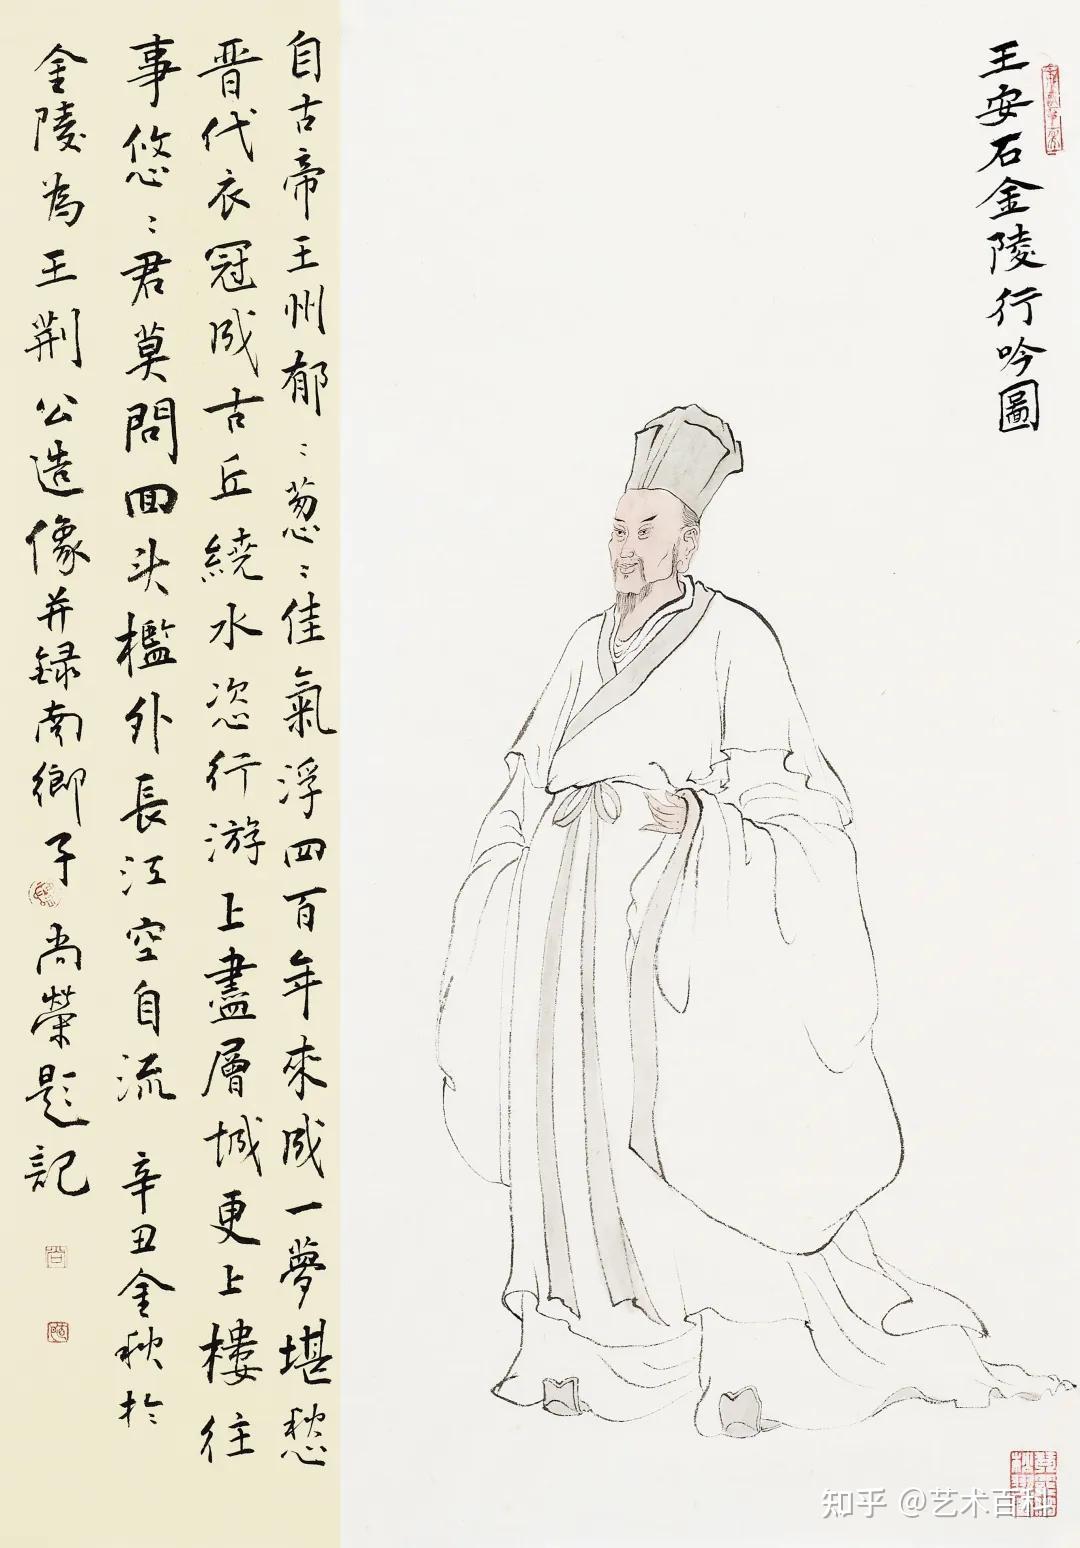 王安石金陵行吟圖
自古帝王州郁：葱：佳氣浮四百年來成一夢堪愁
晋代衣冠成古丘繞水恣行游上盡層城更上樓往
事悠：君莫問囬头檻外長江空自流 辛丑金秋於
金陵為王荆公造像并録南鄉子 尚榮題記
知乎 @艺术百科